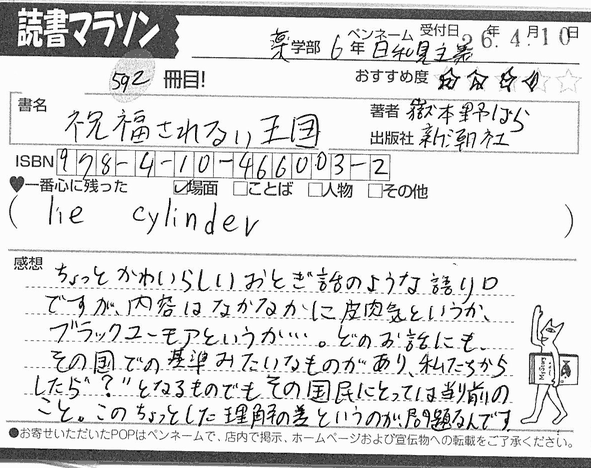 読書マラソン
薬学部 6年 ペンネーム 日和見主義 受付日 26年4月10日
592 冊目! おすすめ度 ☆☆☆☆☆
書名 祝福されない王国
著者 嶽本野ばら
出版社 新潮社
ISBN 978-4-10-466003-2
♥一番心に残った ☑場面 □ことば □人物 □その他
( lie cylinder )
感想
ちょっとかわいらしいおとぎ話のような語り口
ですが、内容はなかなかに皮肉気というか、
ブラックユーモアというか…。どのお話にも、
その国での基準みたいなものがあり、私たちから
したら"?"となるものでもその国民にとっては当り前の
こと。このちょっとした理解の差というのが、問題なんです。
●お寄せいただいたPOPはペンネームで、店内で掲示、ホームページおよび宣伝物への転載をご了承ください。